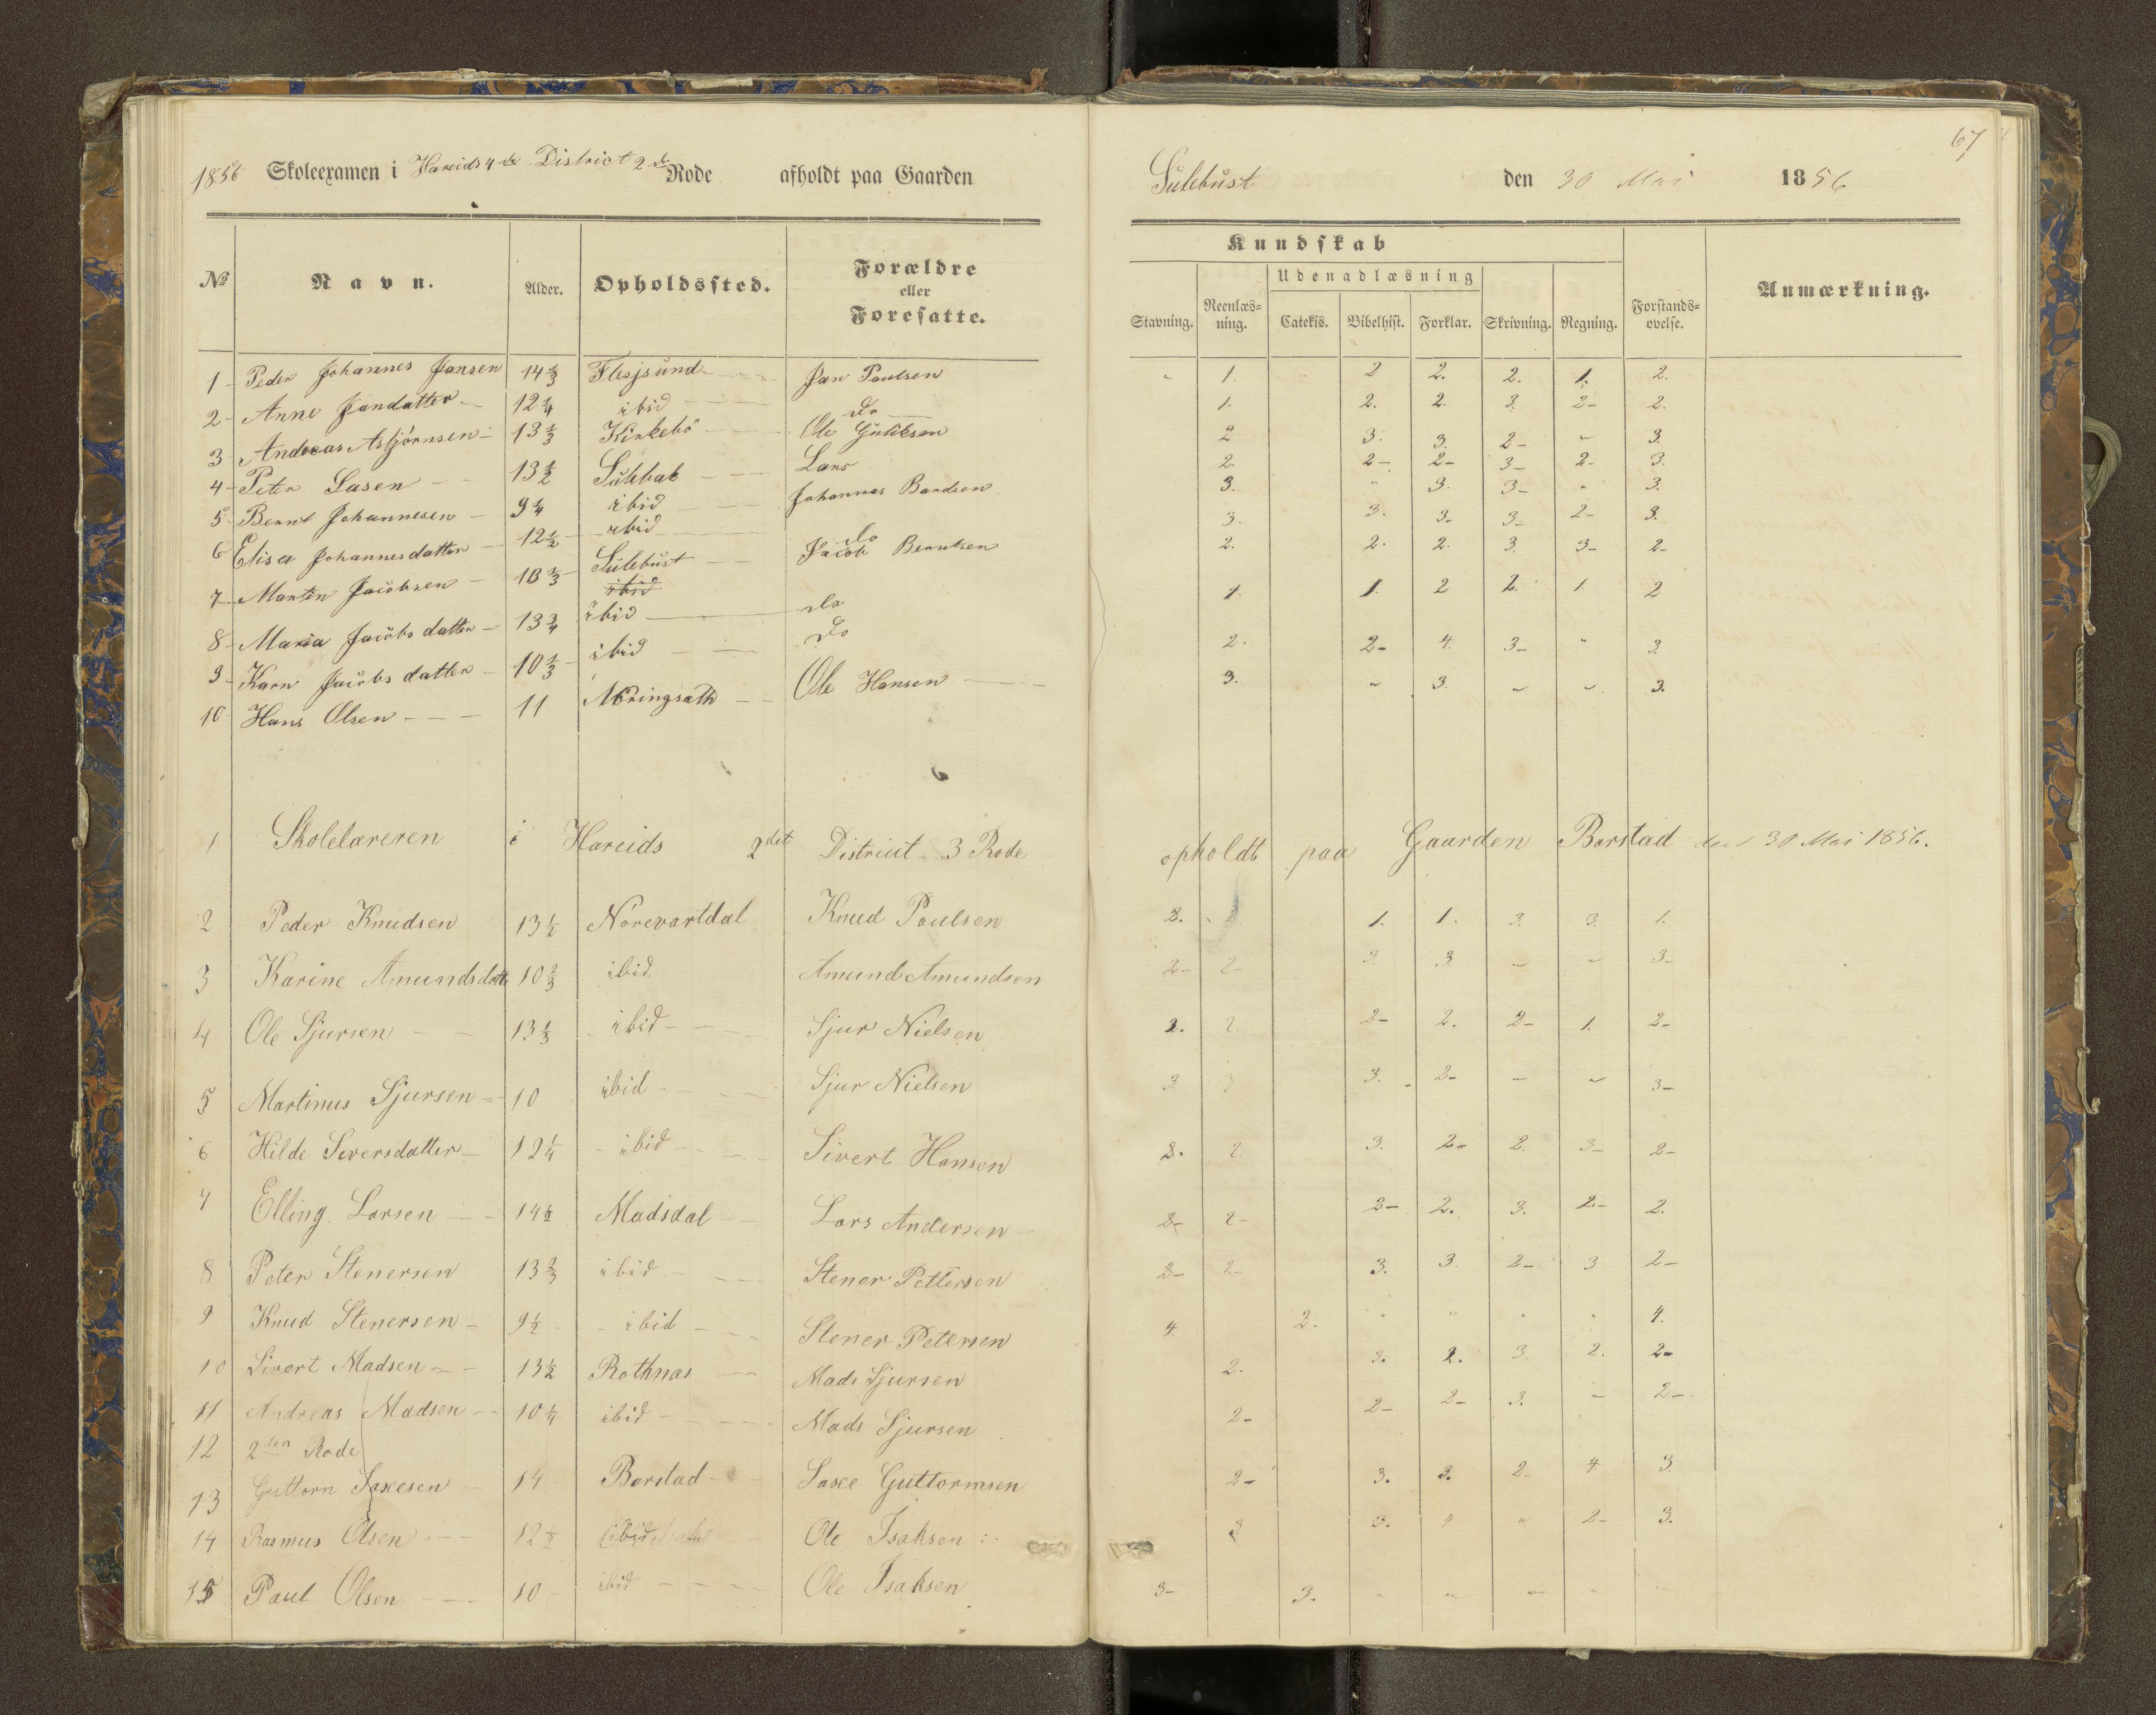 67
1856 Skoleexamen i Hareids 4de District 2de Rode afholdt paa Gaarden Sulebust den 30 Mai 1856
Kundskab
Udenadlæsning
№ Navn. Alder. Opholdssted. Forældre eller Foresatte. Stavning. Reenlæsning. Catekis. Bibelhist. Forklar. Skrivning. Regning. Forstandsøvelse. Anmærkning.
1 Peder Johannes Jansen 14 1/3 Flesjsund Jan Paulsen 1. 2 2. 2. 1. 2.
2 Anne Jandatter 12 1/4 ibid do 1. 2. 2. 3. 2- 2.
3 Andreas Asbjørnsen 13 1/3 Kirkebö Ole 2 3. 3. 2- " 3.
4 Peter Lasen 13 1/2 Sulebak Lars 2. 2- 2- 3- 2- 3.
5 Bernt Johannesen 9 1/4 ibid Johannes Bardsen 3. " 3. 3- " 3.
6 Elisa Johannesdatter 12 1/2 ibid do 3. 3. 3- 3- 2- 3.
7 Martin Jacobsen 13 1/3 Sulebust Jacob Berntsen 2. 2. 2. 3. 3- 2-
ibid
8 Maria Jacobsdatter 13 3/4 ibid do 1. 1. 2 2. 1. 2
9 Karn Jacobsdatter 10 1/3 ibid do 2. 2- 4. 3- " 3.
10 Hans Olsen 11 Ole Hansen 3. " 3. " " 3.
1 Skolelæreren i Hareids 2det District 3 Rode opholdt paa Gaarden Barstad den 30 Mai 1856.
2 Peder Knudsen 13 1/2 Nörevartdal Knud Paulsen 2. 1. 1. 3. 3. 1.
3 Karine Amundsdatt 10 2/3 ibid Amund Amundsen 2- 2- 3. 3. " " 3-
4 Ole Sjursen 13 1/3 ibid Sjur Nielsen 2. 2. 2- 2. 2- 1. 2-
5 Martinus Sjursen 10 ibid Sjur Nielsen 3. 3 3. 2- " " 3-
6 Hilde Seversdatter 12 1/4 ibid Sivert Hansen 2. 2. 3. 2- 2. 3- 2-
7 Elling Larsen 14 1/2 Madsdal Lars Andersen 2- 2- 3- 2. 3. 2- 2.
8 Peter Stenersen 13 2/3 ibid Stener Pettersen 2- 2- 3. 3. 2- 3 2-
9 Knud Stenersen 9 1/2 ibid Stener Petersen 4. 2. " " " " 4.
10 Sivert Madsen 13 1/2 Rothnæs Mads Sjursen 2. 3. 2. 3. 2. 2-
11 Andreas Madsen 10 1/4 ibid Mads Sjursen 2- 2- 2- 3. " 2-
12 2den Rode
13 Guttorn Saxesen 14 Barstad Saxe Guttormsen 2- 3. 3. 2- 4. 3.
14 Rasmus Olsen 12 1/2 ibid Ole Isaksen 3. 3. 4 " 2- 3.
15 Paul Olsen 10 ibid Ole Isaksen 3- 3. " " " " "